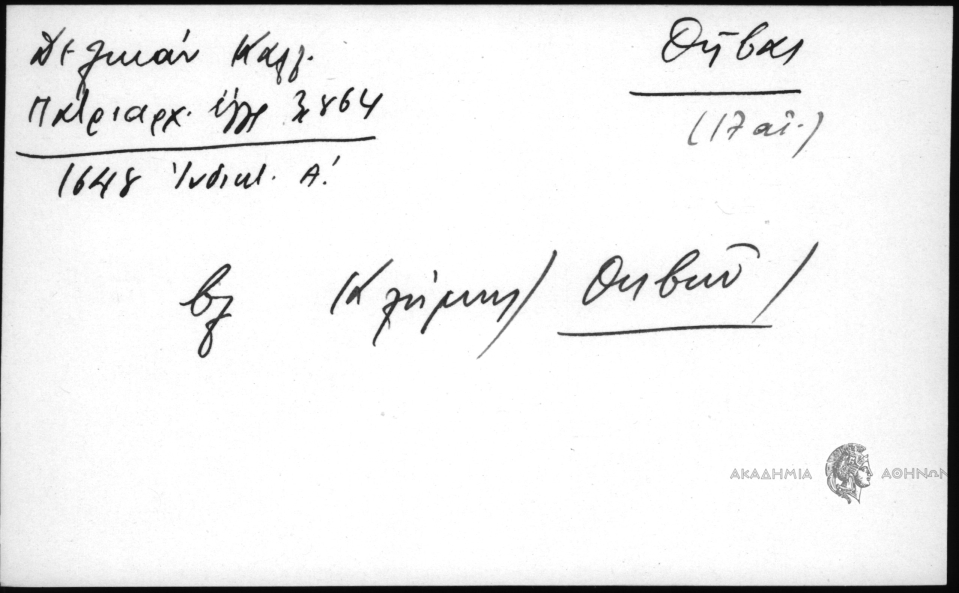 Δελικάν Καλλ.
Πατριαρχ. έγγρ 3,864
1648 Ἰνδικτ. Α!
Θῆβαι
(17 αἰ.)
βλ Κλήμης / Θηβῶν /
ΑΚΑΔΗΜΙΑ ΑΘΗΝΩΝ